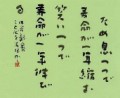 ため息一つで
寿命が一年縮む
笑い一つで
寿命が一年延び
る